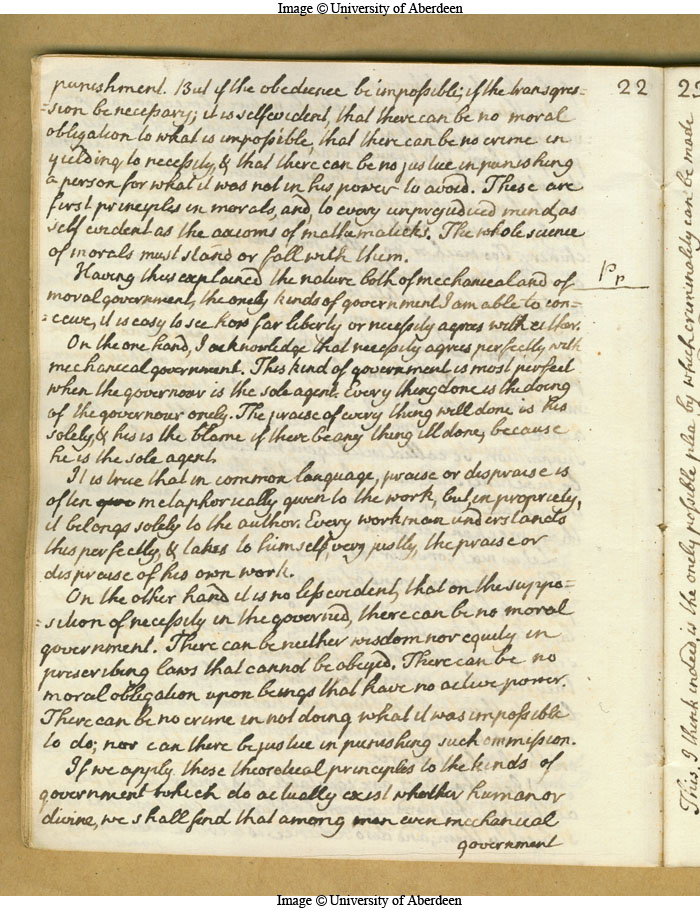 Image © University of Aberdeen
22
23
punishment. But if the obedience be impossible; if the transgres=
=sion be necessary; it is self evident, that there can be no moral
obligation to what is impossible, that there can be no crime in
yielding to necessity, & that there can be no justice in punishing
a person for what it was not in his power to avoid. These are
first principles in morals, and, to every unprejudiced mind, as
self evident as the axioms of mathematicks. The whole science
of morals must stand or fall with them.
Having thus explained the nature both of mechanical and of
moral government, the onely kinds of government I am able to con=
=ceive, it is easy to see how far liberty or necessity agrees with either.
On the one hand, I acknowledge that necessity agrees perfectly with
mechanical government. This kind of government is most perfect
when the governour is the sole agent. Every thing done is the doing
of the governour onely. The praise of every thing well done is his
solely, & his is the blame if there be any thing ill done, because
he is the sole agent.
It is true that in common language, praise or dispraise is
often metaphorically given to the work, but in propriety,
it belongs solely to the author. Every workman understands
this perfectly, & takes to himself, very justly, the praise or
dispraise of his own work.
On the other hand it is no less evident, that on the suppo=
=sition of necessity in the governed, there can be no moral
government. There can be neither wisdom nor equity in
prescribing laws that cannot be obeyed. There can be no
moral obligation upon beings that have no active power.
There can be no crime in not doing what it was impossible
to do; nor can there be justice in punishing such ommission.
If we apply these theoretical principles to the kinds of
government which do actually exist whether human or
divine, we shall find that among men even mechanical
government
This, I think indeed, is the onely possible plea by which criminality can be made
Image © University of Aberdeen